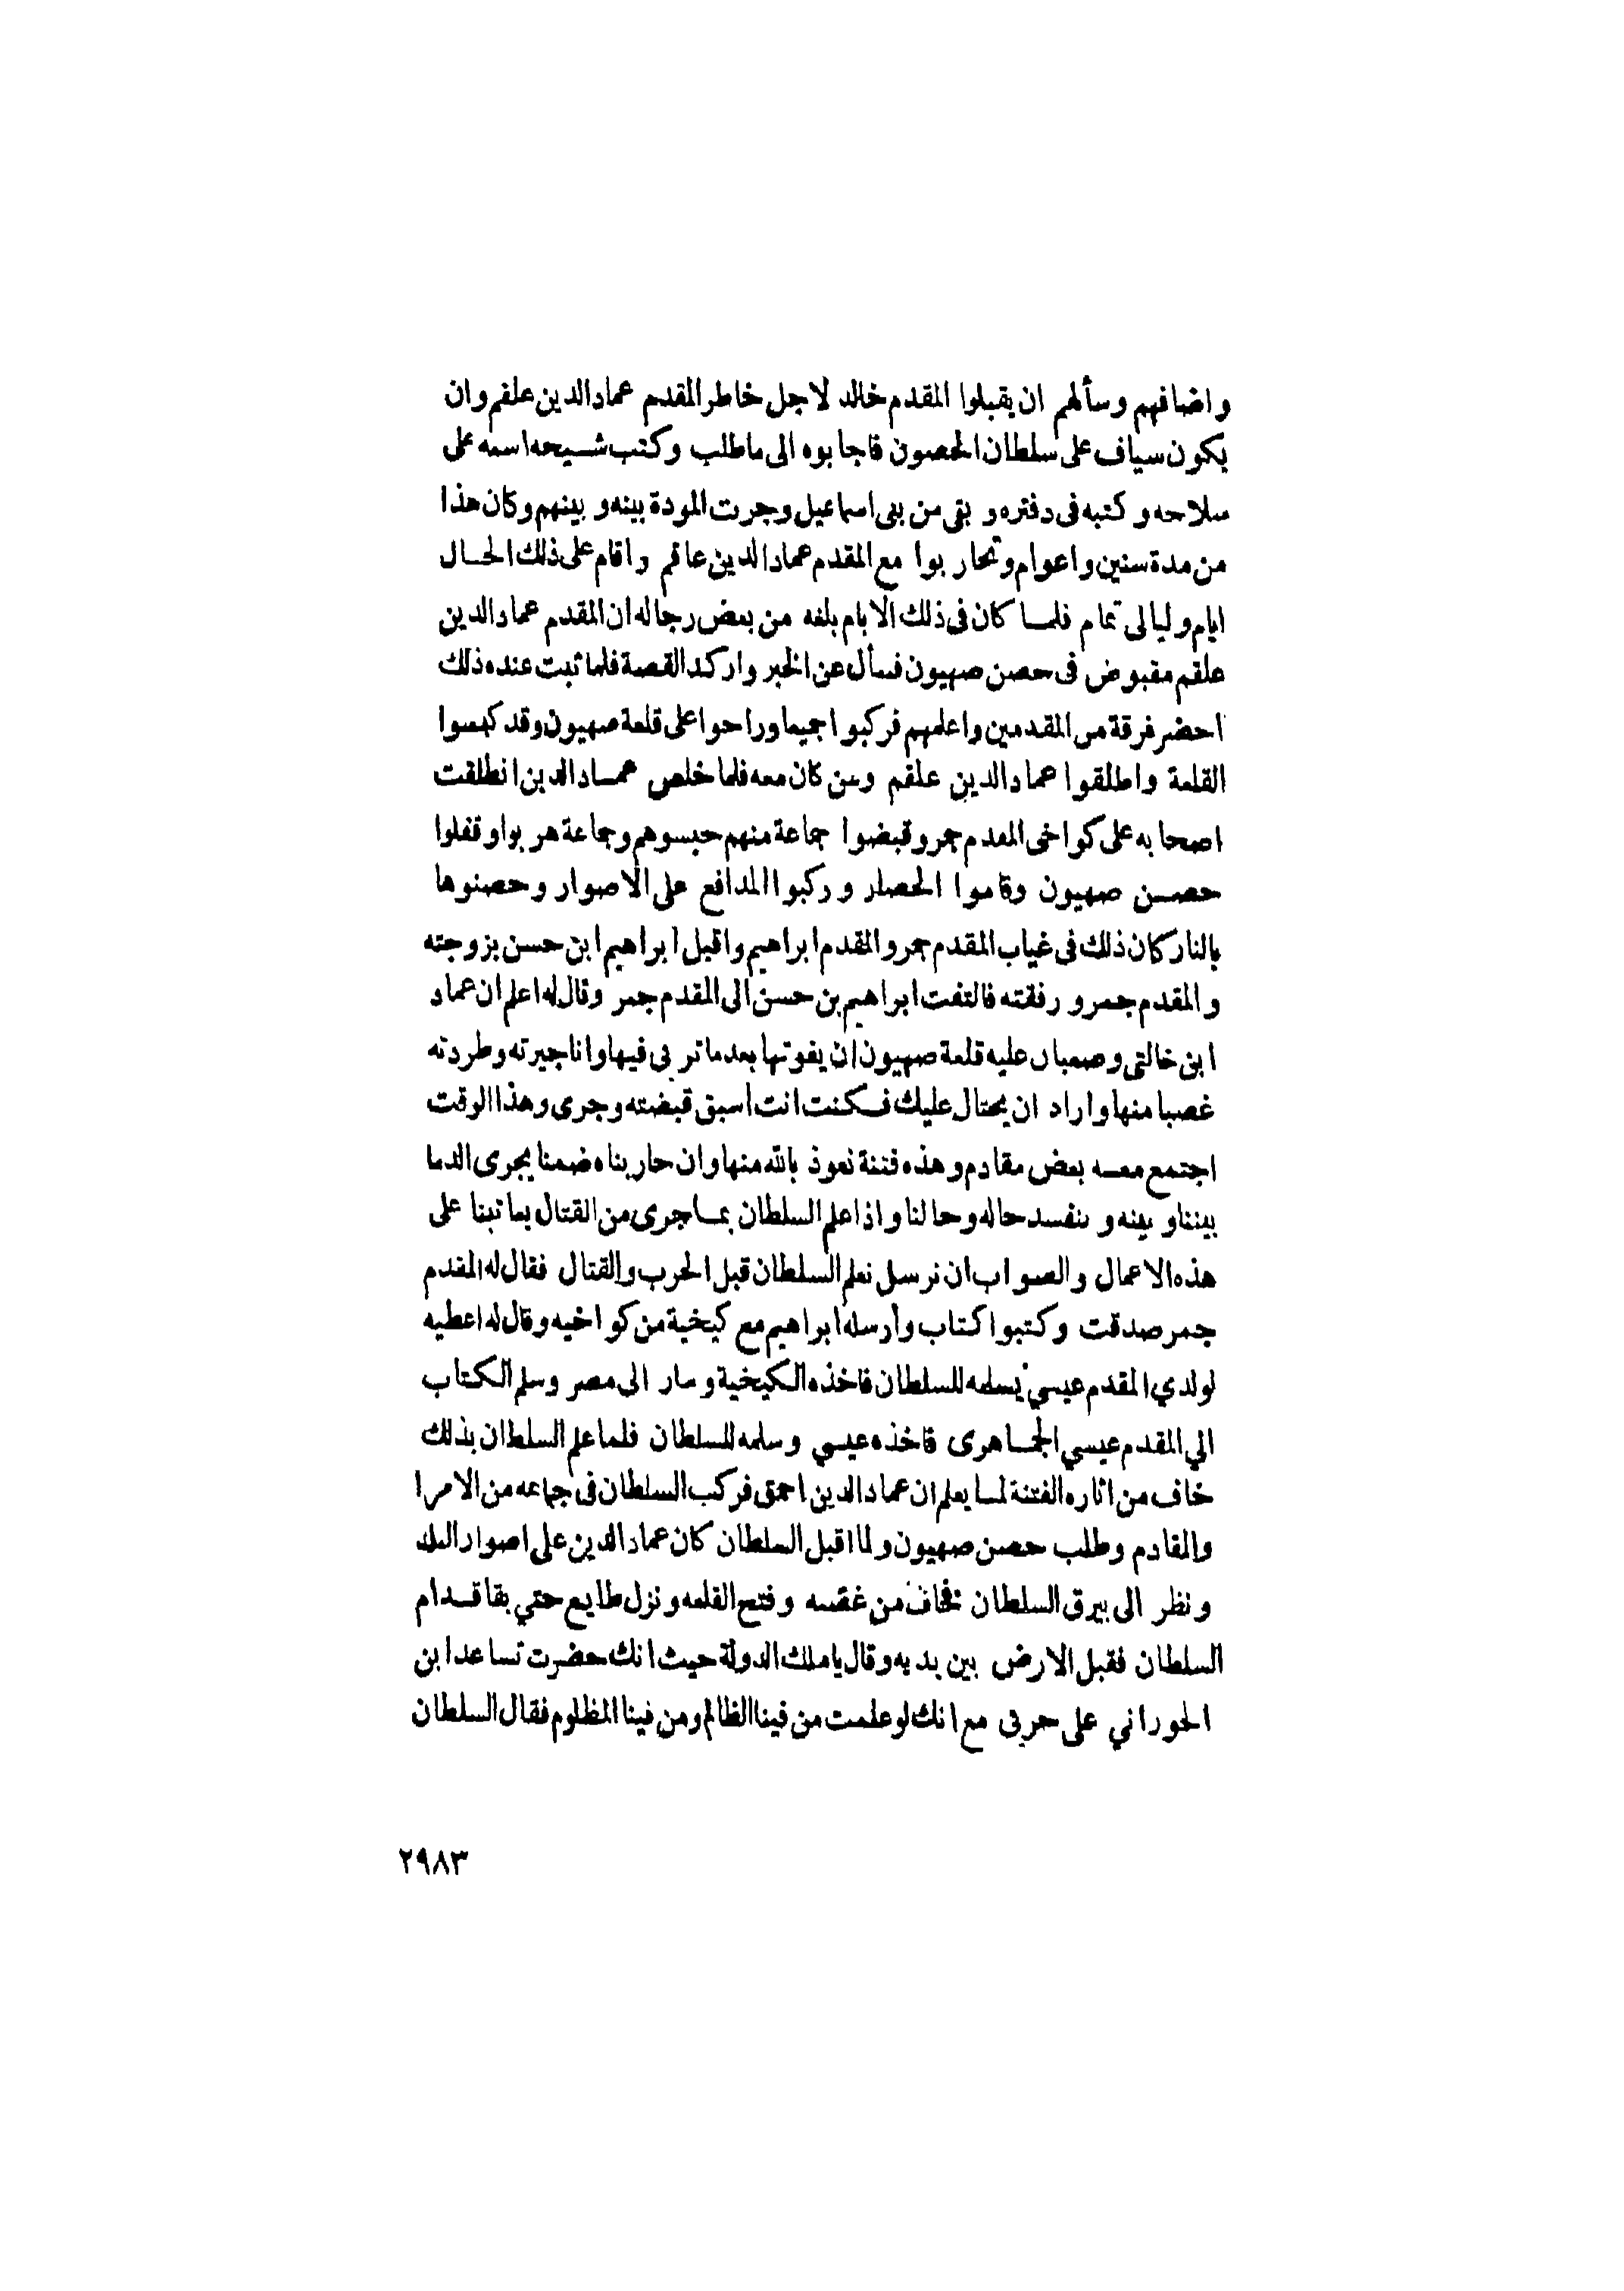 واضافهم وسألهم ان يقبلوا المقدم خالد لاجل خاطر المقدم عماد الدين علقم وان
يكون سياف على سلطان الحصون فاجابوه الى ماطلب وكتب شيحه اسمه على
سلاحه وكتبه فى دفتره وبقى من بنى اسماعيل وجرت المودة بينه وبينهم وكان هذا
من مدة سنين واعوام وتحاربوا مع المقدم عماد الدين عاقم واقام على ذلك الحال
ايام وليالى تمام فلما كان فى ذلك الايام بلغه من بعض رجاله ان المقدم عماد الدين
علقم مقبوض فى حصن صهيون فسأل عن الخبر واركد القصة فلما ثبت عنده ذلك
احضر فرقة من المقدمين واعلمهم فركبوا جميعا وراحوا على قلعة صهيون وقد كبسوا
القلعة واطلقوا عماد الدين علقم ومن كان معه فلما خلص عماد الدين انطلقت
اصحابه على كواخى المقدم جمر وقبضوا جماعة منهم حبسوهم وجماعة هربوا وقفلوا
حصن صهيون وقاموا الحصار وركبوا المدافع على الاصوار وحصنوها
بالنار كان ذلك فى غياب المقدم جمر والمقدم ابراهيم واقبل ابراهيم ابن حسن بزوجته
والمقدم جمر ورفقته فالتفت ابراهيم بن حسن الى المقدم جمر وقال له اعلم ان عماد
ابن خالتى وصعبان عليه قلعة صهيون ان يفوتها بعد ماتربى فيها وانا جيرته وطردته
غصبا منها واراد ان يحتال عليك فكنت انت أسبق قبضته وجرى وهذا الوقت
اجتمع معه بعض مقادم وهذه فتنة نعوذ بالله منها وان حاربناه ضمنا يجرى الدما
بيننا وبينه وننفسد حاله وحالنا واذا علم السلطان بما جرى من القتال يعاتبنا على
هذه الاعمال والصواب ان نرسل نعلم السلطان قبل الحرب والقتال فقال له المقدم
جمر صدقت وكتبوا كتاب وأرسله ابراهيم مع كيخية من كواخيه وقال له اعطيه
لولدي المقدم عيسي يسلمه للسلطان فاخذه الكيخية وسار الى مصر وسلم الكتاب
الي المقدم عيسي الجماهرى فاخذه عيسي وسلمه للسلطان فلما علم السلطان بذلك
خاف من اثاره الفتنة لما يعلم ان عماد الدين احمق فركب السلطان فى جماعه من الامرا
والمقادم وطلب حصن صهيون ولما اقبل السلطان كان عماد الدين على اصوار البلد
ونظر الى بيرق السلطان فخاف من غضبه وفتح القلعه ونزل طايع حتي بقا قدام
السلطان فقبل الارض بين يديه وقال ياملك الدولة حيث انك حضرت تساعد ابن
الحوراني على حربى مع انك لو علمت من فينا الظالم ومن فينا المظلوم فقال السلطان
٢٩٨٣